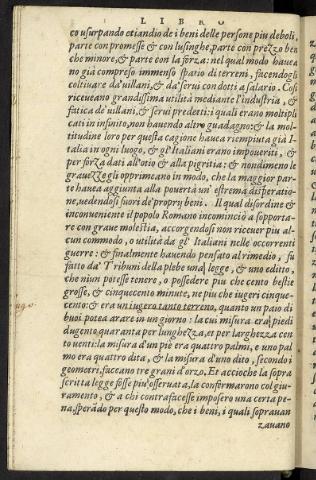 LIBRO
co usurpando etiandio de i beni delle persone piu deboli,
parte con promesse & con lusinghe, parte con prezzo ben
che minore, & parte con la forza: nel qual modo havea
no già compreso immenso spatio di terreni, facendogli
coltivare da' villani, & da' servi con dotti a salario. Cosi
ricevevano grandissima utilità mediante l'industria, &
fatica de' villani, & servi predetti: i quali erano moltipli
cati in infinito, non havendo altro guadagno: & la mol-
titudine loro per questa cagione havea riempiuta già I-
talia in ogni luogo, & gl' Italiani erano impoveriti, &
per forza dati all'otio & alla pigritia: & nondimeno le
gravezze gli opprimeano in modo, che la maggior par
te havea aggiunta alla povertà un' estrema disperatio-
ne, vedendosi fuori de' proprij beni. Il qual disordine &
inconveniente il popolo Romano incominciò a sopporta-
re con grave molestia, accorgendosi non ricever piu al-
cun commodo, o utilità da gl' Italiani nelle occorrenti
guerre: & finalmente havendo pensato al rimedio, fù
fatto da' Tribuni della plebe una legge, & uno editto,
che niun potesse tenere, o possedere piu che cento bestie
grosse, & cinquecento minute, ne piu che iugeri cinque-
cento: & era un iugero tanto terreno, quanto un paio di
buoi potea arare in un giorno: la cui misura era piedi
dugento quaranta per lunghezza, et per larghezza cen
to venti: la misura d'un piè era quattro palmi, e uno pal
mo era quattro dita, & la misura d'uno dito, secondo i
geometri, faceano tre grani d'orzo. Et accioche la sopra
scritta legge fosse piu osservata, la confermarono col giu-
ramento, & a chi contrafacesse imposero una certa pe-
na, sperādo per questo modo, che i beni, i quali sopravan
zavano